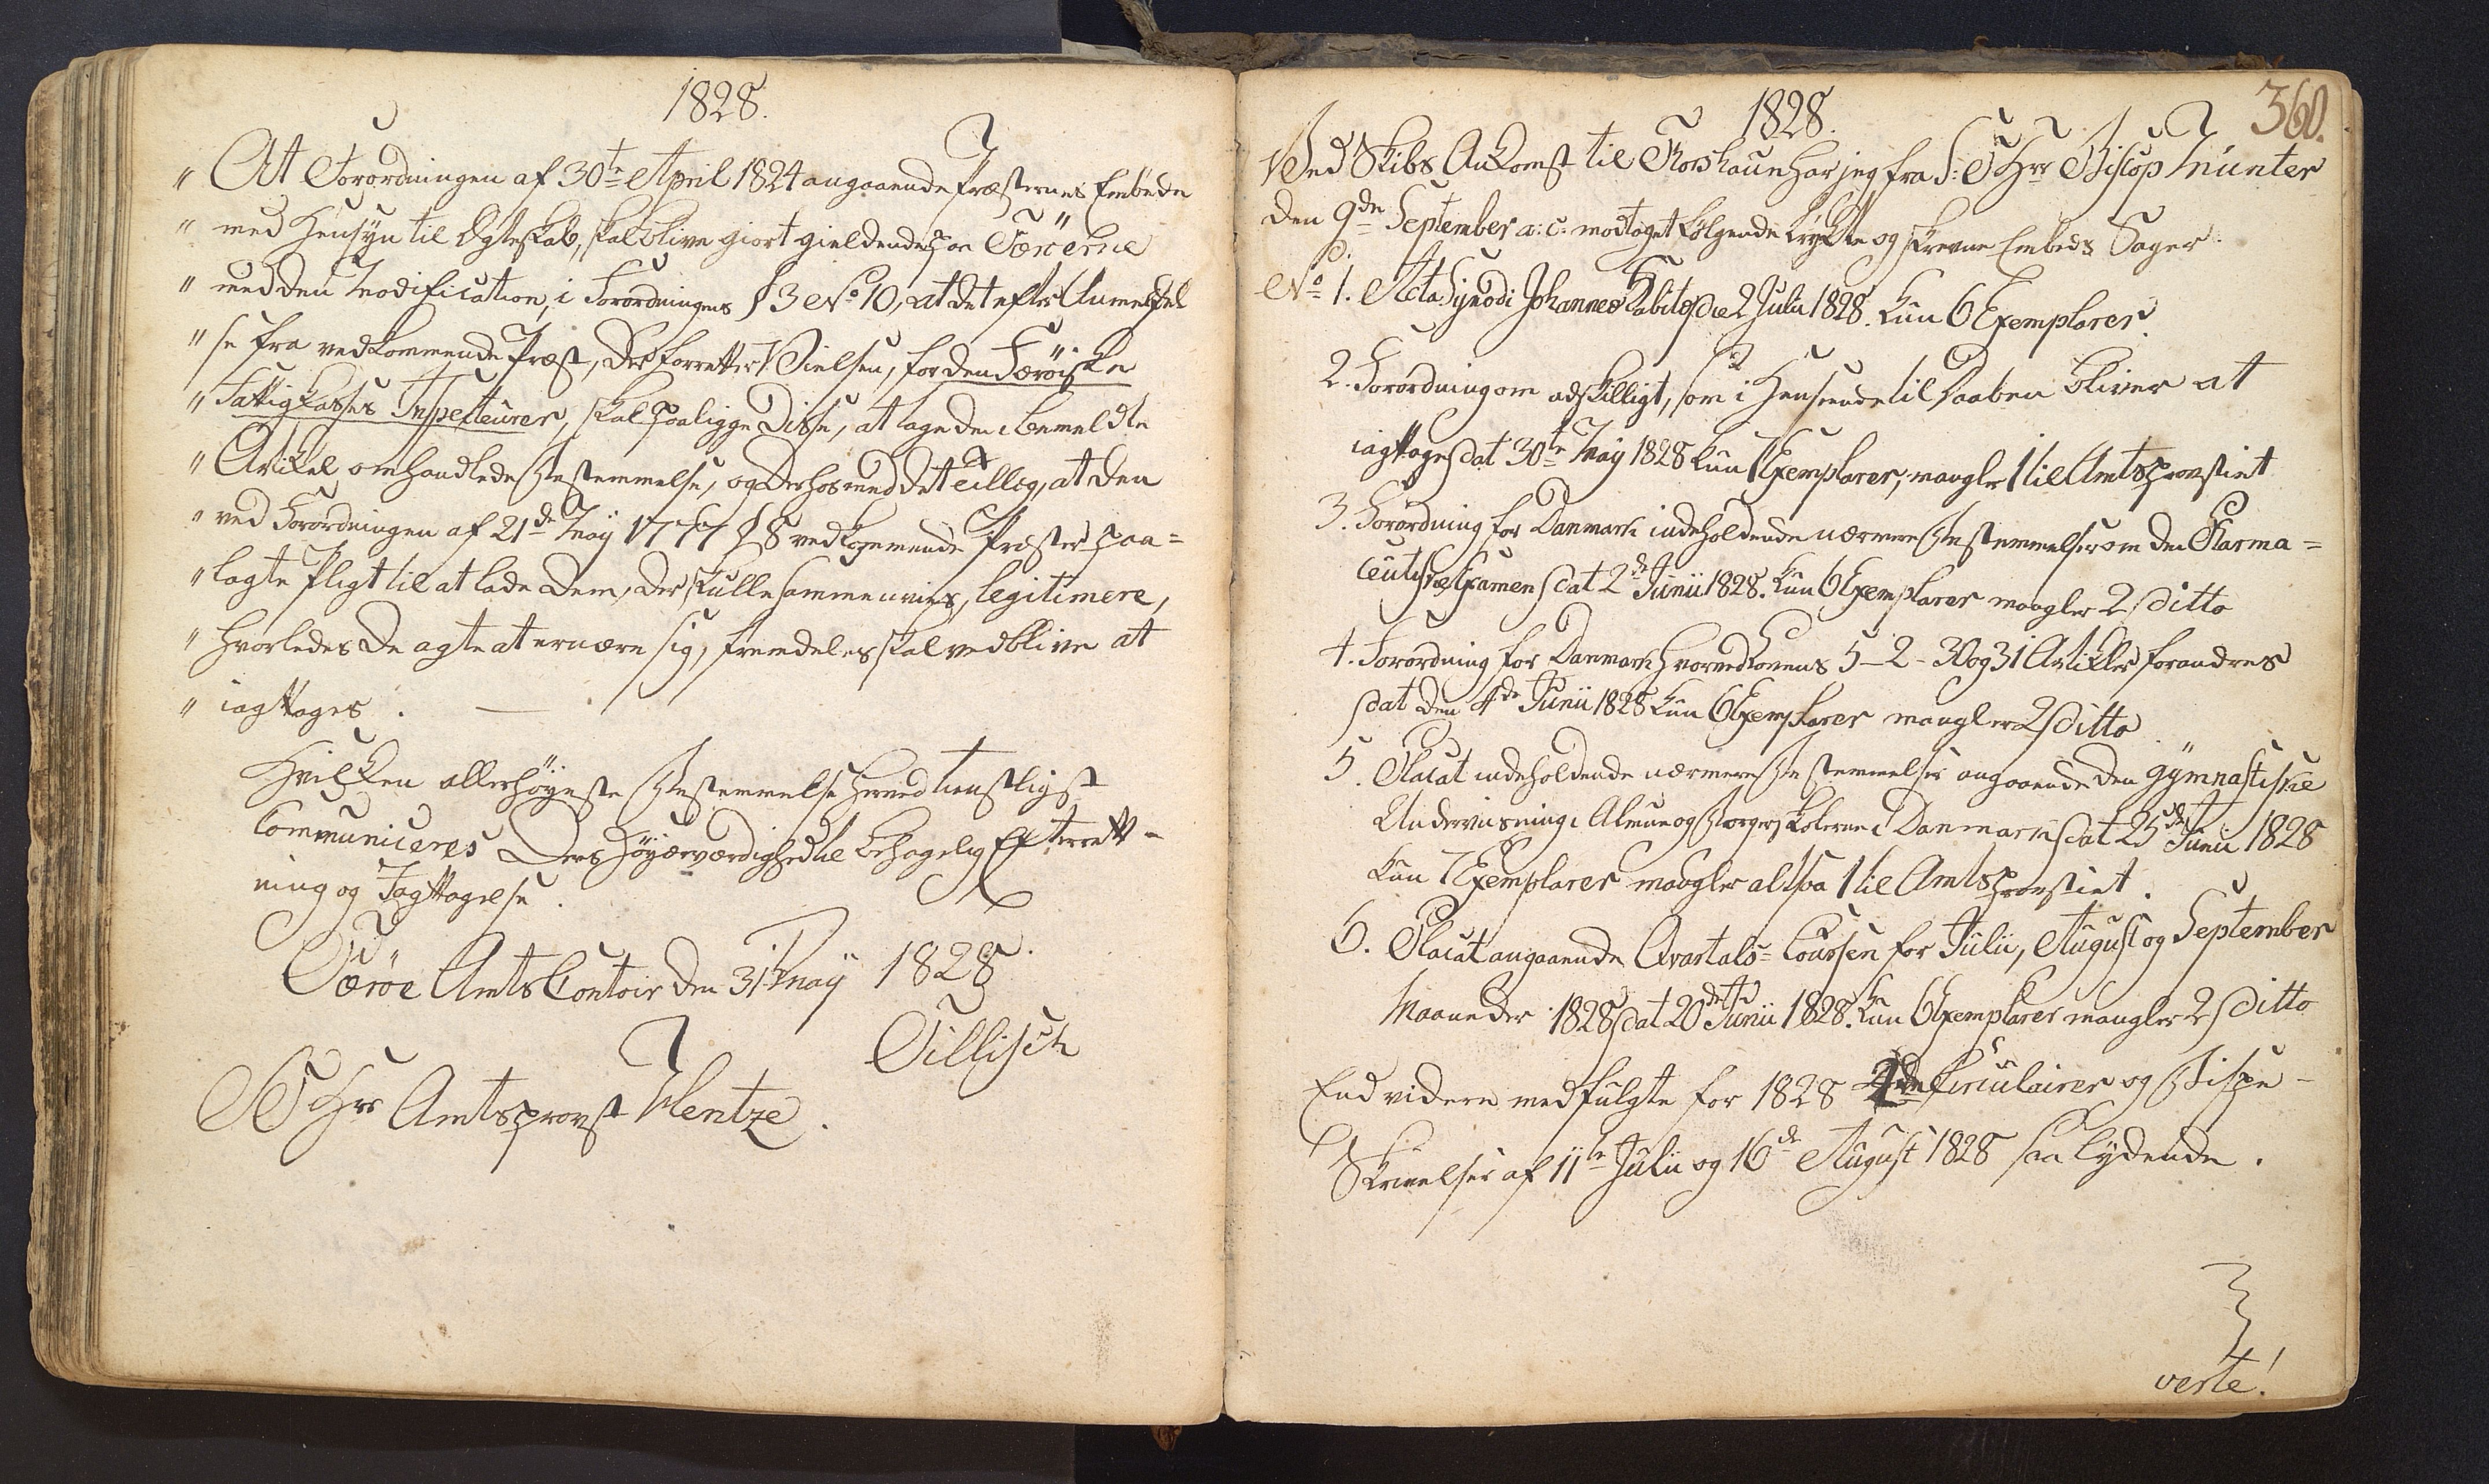 1828.
" At Forordningen af 30te April 1824 angaaende Præsternes Embede
" med Hensyn til Ægteskab, skal blive giort gieldende paa Færöerne
" med den Modification, i Forordningens § 3 No 10, at det efter Anmeldel
" se fra vedkommende Præst, der forretter Vielsen, for den Færöiske
" Fattigkasses Inspecteurer, skal paaligge Disse, at tage den i bemeldte
" Artikel omhandlede Bestemmelse, og derhos med det Tillæg, at den
" ved Forordningen af 21de May 1777 § 8 vedkommende Præster paa=
" lagte Pligt til at lade Dem, der skulle sammenvies, legitimere,
" hvorledes De agte at ernære sig, fremdeles skal vedblive at
" iagttages. —
Hvilken allerhöyeste Bestemmelse herved tienstligst
Communiceres Deres Höyærværdighed til behagelig Efterrett-
ning og Iagttagelse.
Færöe Amts Contoir den 31te May 1828.
Tillisch
S: T: Hrr Amtsprovst Hentze.
360.
1828.
Ved Skibs Ankomst til Thorshaun har jeg fra S: T: Hrr Biscop Münter
den 9de September a: c: modtaget fölgende trykte og skrevne Embeds Sager.
No 1. Acta Synodi Johannes habitos die 2 Julii 1828. kun 6 Exemplarer.
2. Forordning om adskilligt, som i Henseende til Daaben bliver at
iagttage dat 30te May 1828 kun 7 Exemplarer, mangler 1 til Amtsprovstiet
3. Forordning for Danmark indeholdende nærmere Bestemmelser om den Farma=
ceutiske Examen dat 2de Junii 1828. kun 6 Exemplarer mangler 2 ditto
4. Forordning for Danmark hvorved Lovens 5-2-30 og 31 Artikler forandres
dat den 4de Junii 1828 kun 6 Exemplarer mangler 2 ditto
5. Placat indeholdende nærmere Bestemmelser angaaende den gymnastiske
Underviisning i Almue og Borgerskolerne i Danmark dat 25de Junii 1828
kun 7 Exemplarer mangler altsaa 1 til Amtsprovstiet.
6. Placat angaaende Qvartals=Coursen for Julii, August og September
Maaneder 1828 dat 20de Junii 1828. kun 6 Exemplarer mangler 2 ditto
End videre medfulgte for 1828 2de Circulairer og Bispe-
Skrivelser af 11te Julii og 16de August 1828 saa lydende.
verte!